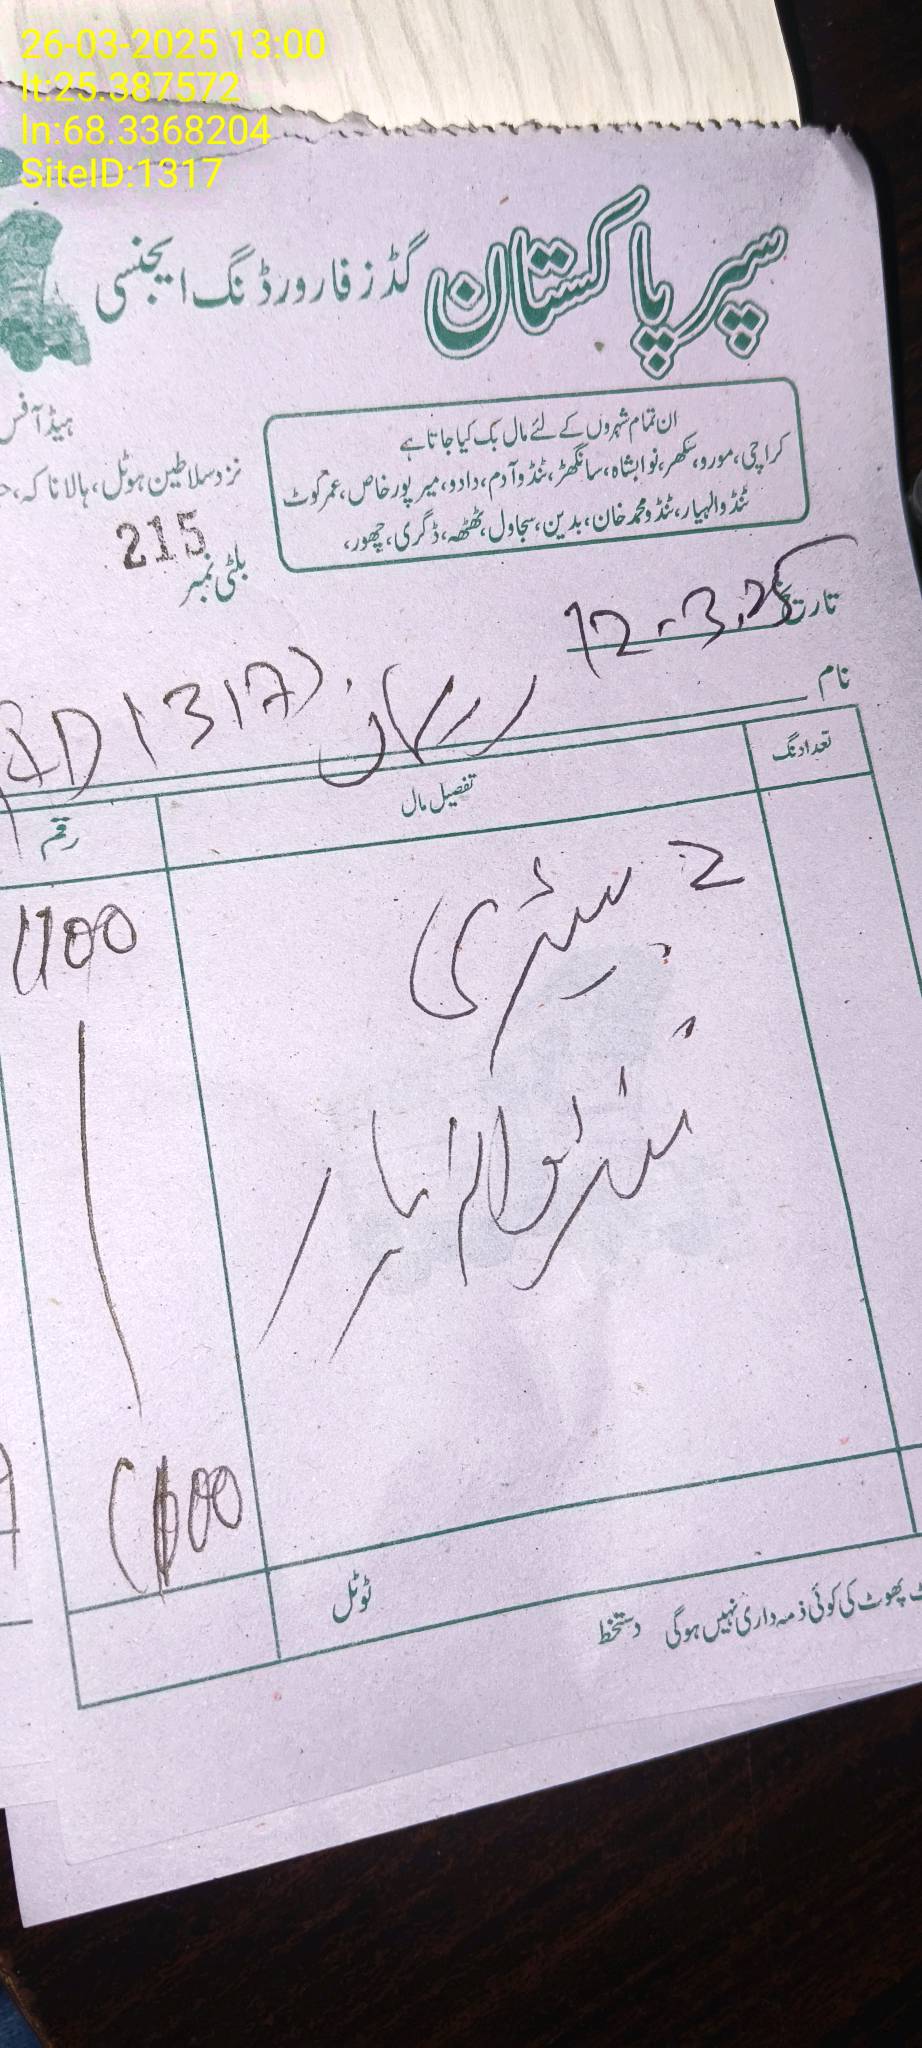 26-03-2025 13:00
lt:25.387572
ln:68.3368204
SiteID:1317
سپر پاکستان گڈز فارورڈنگ ایجنسی
ان تمام شہروں کے لئے مال بک کیا جاتا ہے
کراچی، مورو، سکھر، نوابشاہ، سانگھڑ، ٹنڈو آدم، دادو، میر پور خاص، عمر کوٹ
ٹنڈوالہیار، ٹنڈو محمد خان، بدین، سجاول، ٹھٹھہ، ڈگری، چھور،
ہیڈ آفس
نزد سلاطین ہوٹل، ہالا ناکہ،
بلٹی نمبر 215
تاریخ 12-3-25
نام (1317)
تعداد نگ تفصیل مال رقم
2 بیٹری 1100
ٹنڈوالہیار
1100
ٹوٹل
پھوٹ کی کوئی ذمہ داری نہیں ہوگی دستخط